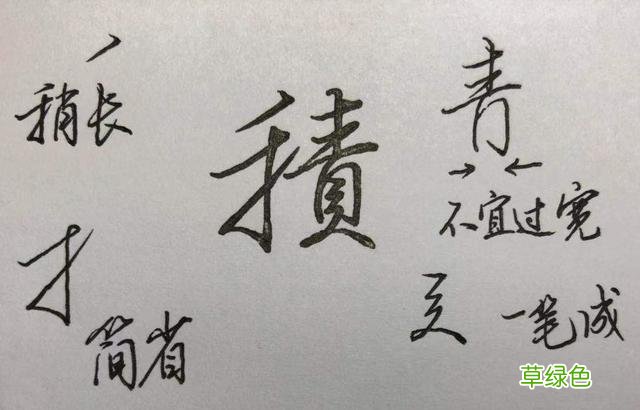 稍长
積
青
不宜过宽
简省
一笔成
草绿色